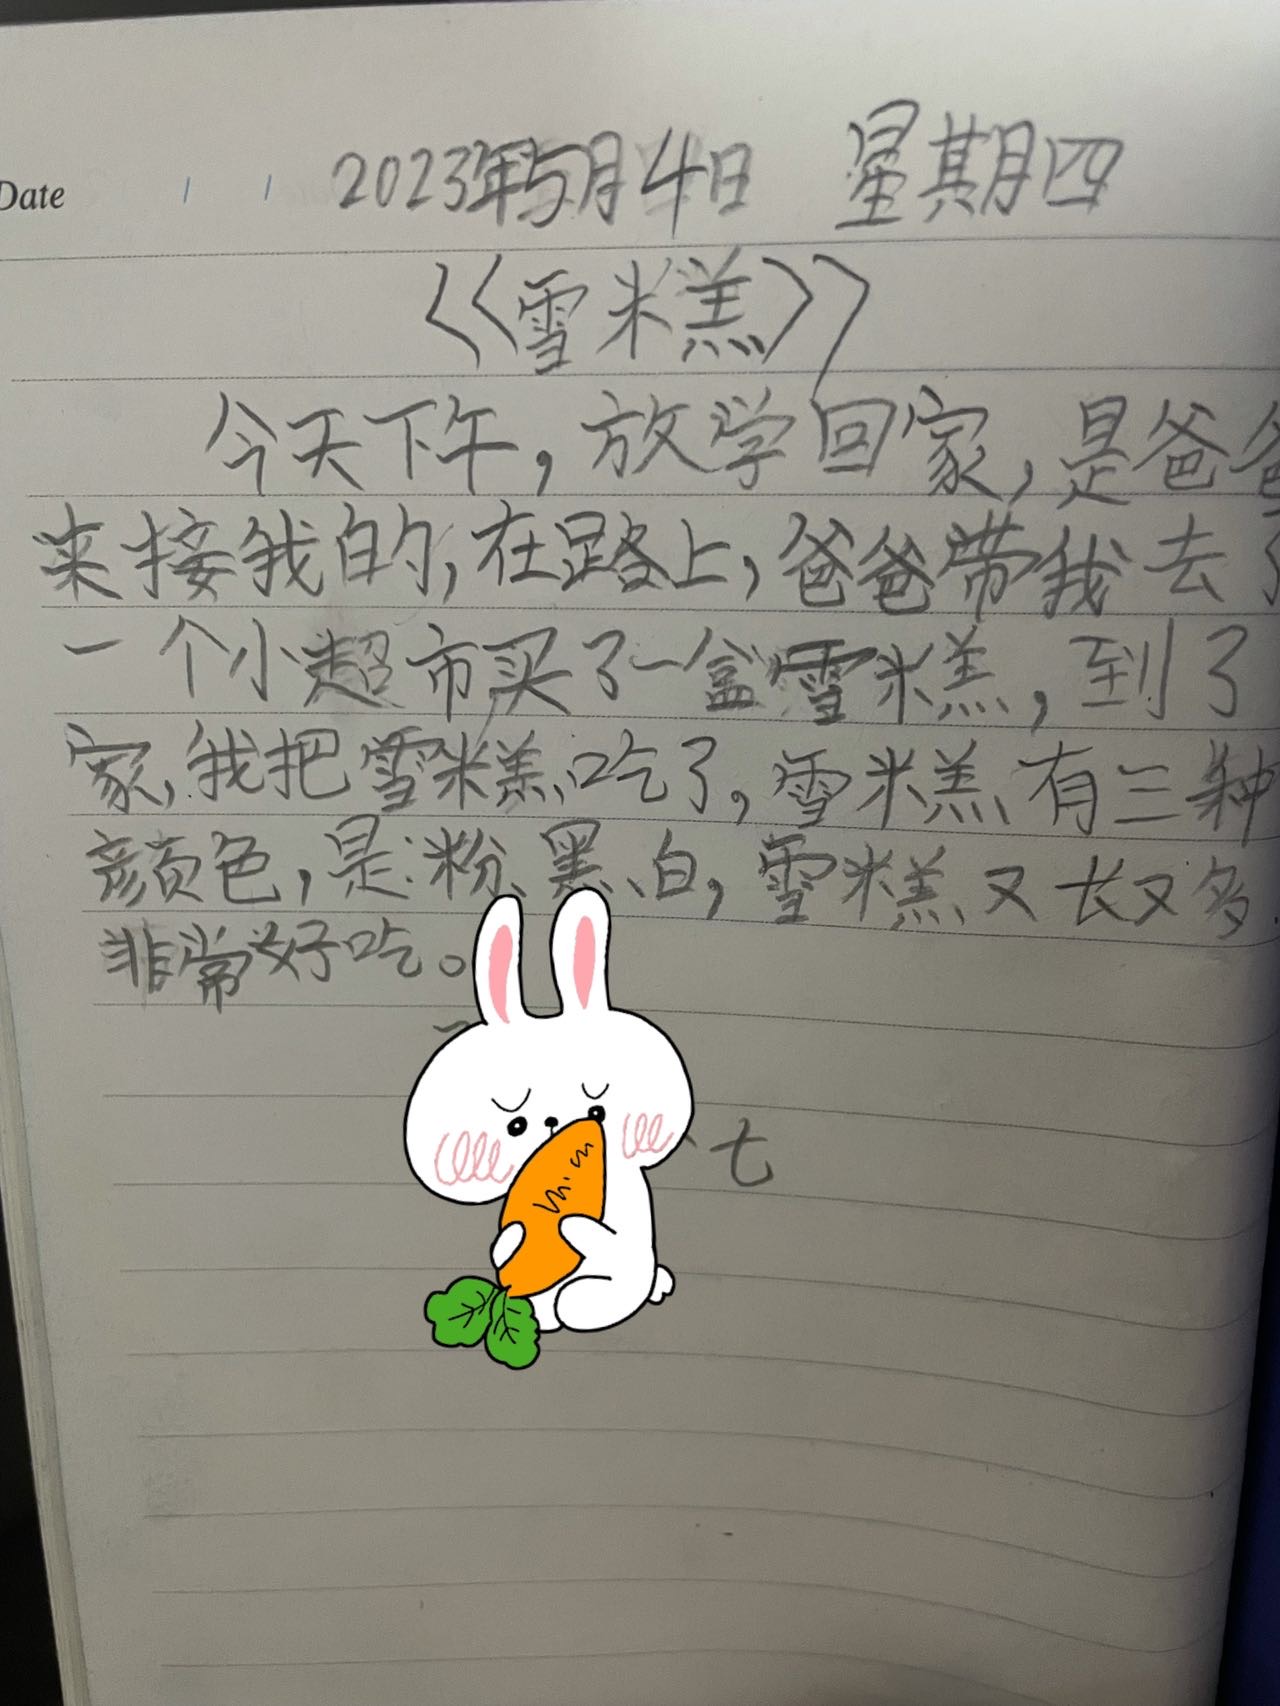 Date
2023年5月4日 星期四
《雪米糕》
今天下午,放学回家,是爸爸
来接我的,在路上,爸爸带我去了
一个小超市买了一盒雪米糕,到了
家,我把雪米糕吃了,雪米糕有三种
颜色,是:粉、黑、白,雪米糕又长又多
非常好吃。
七